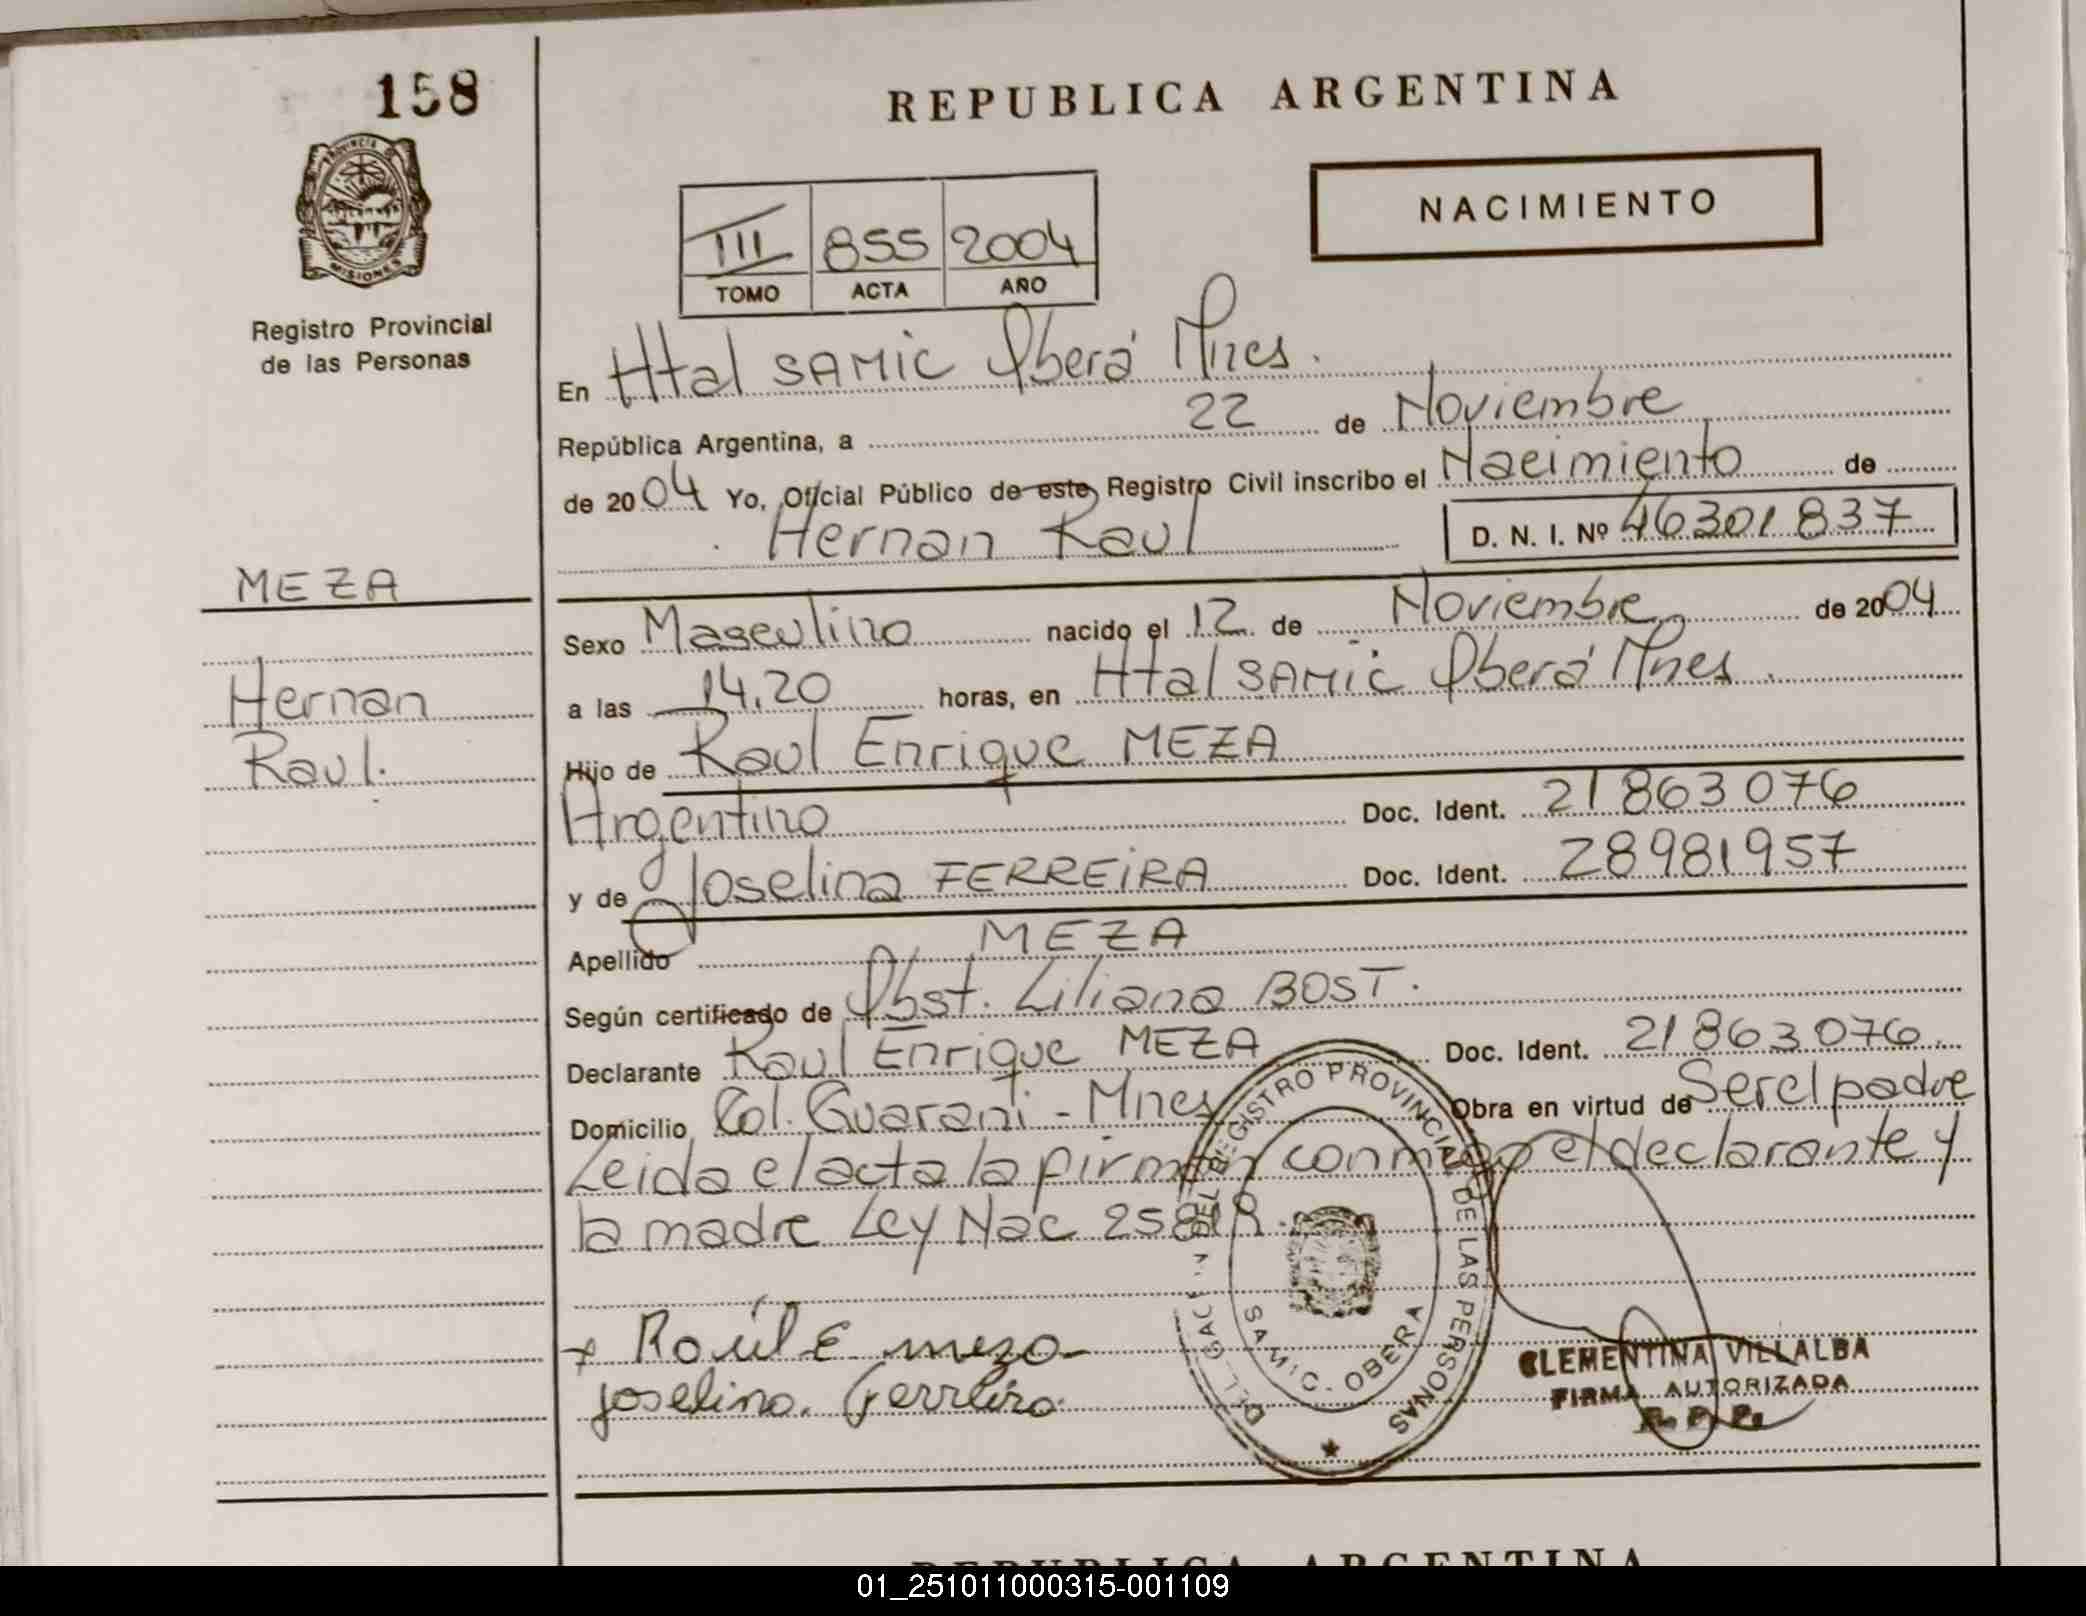 158
PROVINCIA DE
MISIONES
Registro Provincial
de las Personas
MEZA
Hernan
Raul.
REPUBLICA ARGENTINA
NACIMIENTO
III 855 2004
TOMO ACTA AÑO
En Htal SAMIC Oberá Mnes.
República Argentina, a 22 de Noviembre
de 2004 Yo, Oficial Público de este Registro Civil inscribo el Nacimiento de
Hernan Raul D. N. I. Nº 46301837
Sexo Masculino nacido el 12 de Noviembre de 2004
a las 14,20 horas, en Htal SAMIC Oberá Mnes.
Hijo de Raul Enrique MEZA
Argentino Doc. Ident. 21863076
y de Joselina FERREIRA Doc. Ident. 28981957
Apellido MEZA
Según certificado de Obst. Liliana BOST.
Declarante Raul Enrique MEZA Doc. Ident. 21863076.
Domicilio Col. Guarani - Mnes Obra en virtud de Ser el padre
Leida el acta la firman conmigo el declarante y
la madre Ley Nac
REGISTRO PROVINCIAL DE LAS PERSONAS
SAMIC - OBERA
+ Raúl E meza
joselina. Ferreira
CLEMENTINA VILLALBA
FIRMA AUTORIZADA
R. P. P.
REPUBLICA ARGENTINA
01_251011000315-001109